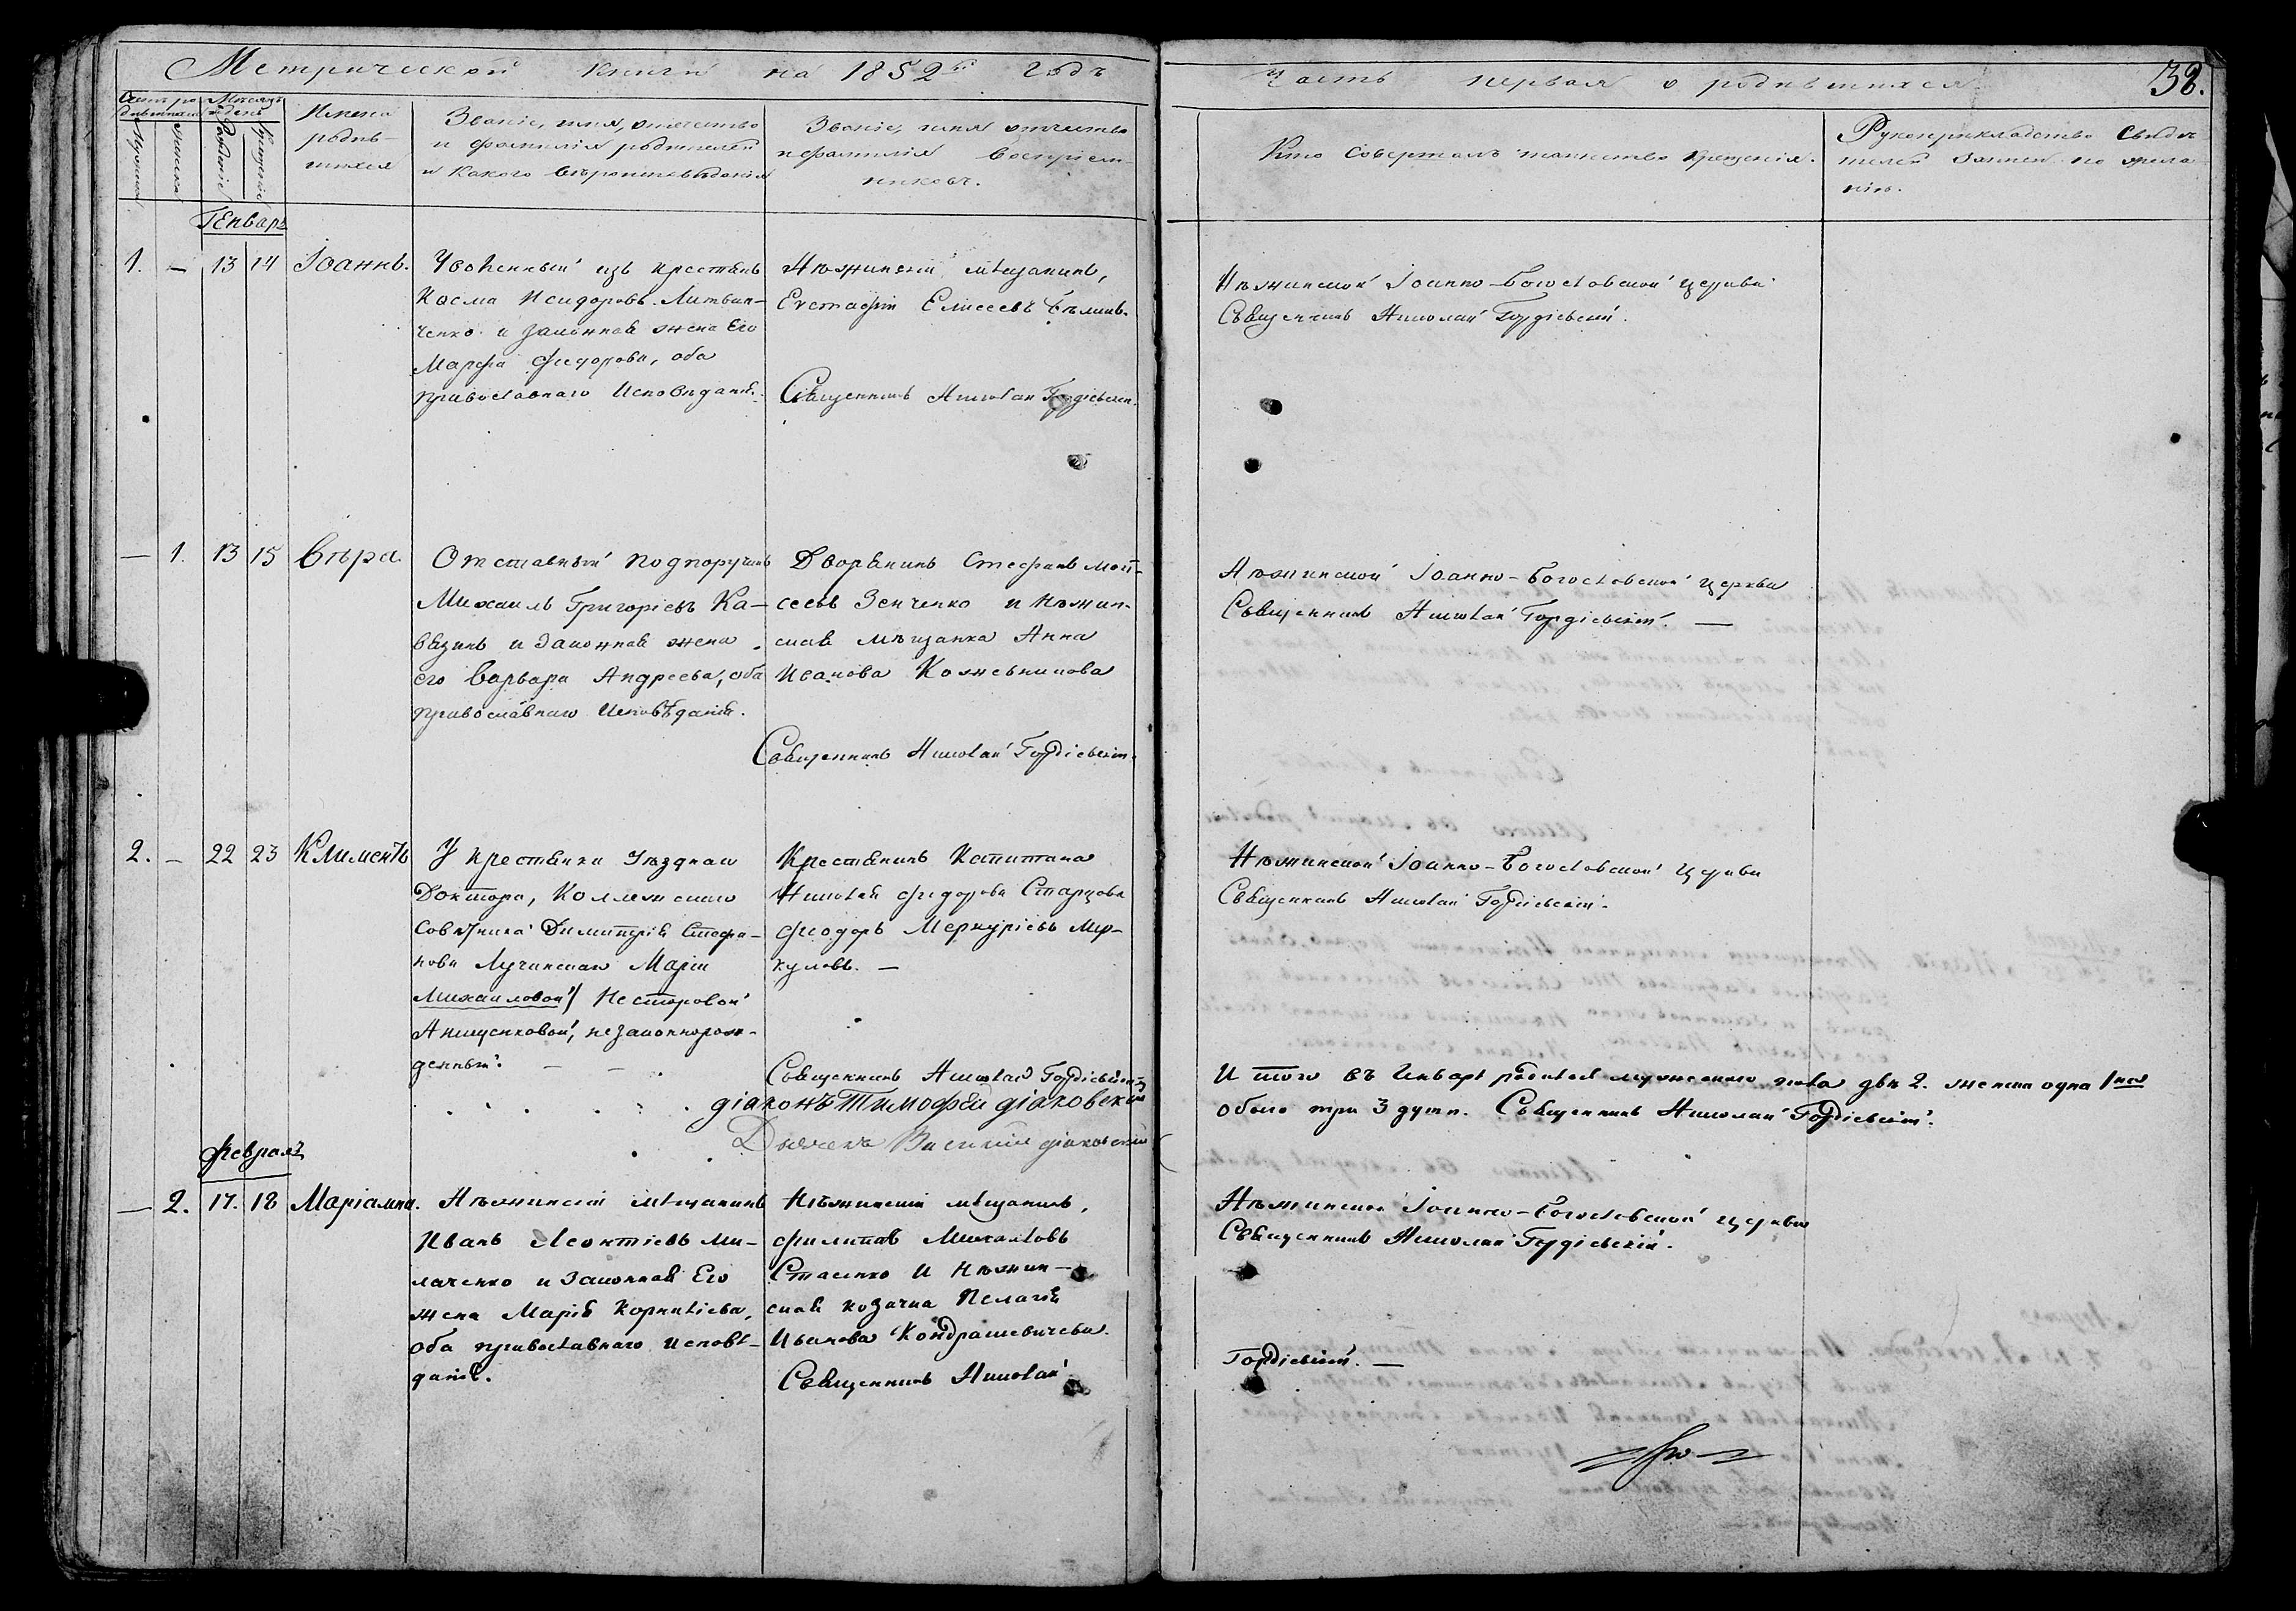 Метрической книги на 1852й годъ
Часть первая о родившихся.
38.
Счетъ родившихся
Мужеска
Женска
Мѣсяцъ и день
Рожденіе
Крещеніе
Имена
родив-
шихся
Званіе, имя, отчество
и фамилія родителей
и какого вѣроисповѣданія
Званіе, имя отчество
и фамилія воспріем-
никовъ.
Кто совершалъ таинство крещенія.
Рукоприкладство свидѣ
телей записи по жела
нію.
Генварь
1. — 13 14 Іоаннъ.
Уволенный изъ крестьянъ
Косма Исидоровъ Литвин-
ченко и законная жена Его
Марфа Федорова, оба
православнаго Исповѣданія.
Нѣжинскій мѣщанинъ,
Евстафій Елисеевъ
Священникъ Николай Гордіевскій.
Нѣжинской Іоанно-Богословской церкви
Священникъ Николай Гордіевскій.
— 1. 13 15 Вѣра.
Отставный подпоручикъ
Михаилъ Григоріевъ Ка-
вязинъ и законная жена
его Варвара Андреева, оба
православнаго Исповѣданія.
Дворянинъ Стефанъ Мои-
сеевъ Зенченко и Нѣжин-
ская мѣщанка Анна
Иванова Кожевникова
Священникъ Николай Гордіевскій.
Нѣжинской Іоанно-Богословской церкви
Священникъ Николай Гордіевскій. —
2. — 22 23 Климентъ
У крестьянки Уѣзднаго
Доктора, Коллежскаго
Совѣтника Димитрія Стефа-
нова Лучинскаго Маріи
Михаиловой/ Несторовой
Анищенковой, незаконнорож-
денный. — —
Крестьянинъ Капитана
Николая Федорова Старцова
Феодоръ Меркуріевъ Мир-
куловъ. —
Священникъ Николай Гордіевскій
діаконъ Тимофей діаковскій
Дьячекъ Василій діаковскій
Нѣжинской Іоанно-Богословской церкви
Священникъ Николай Гордіевскій.
Итого въ Генварѣ родилось мужескаго пола два 2. женска одна 1
обоего три 3 души. Священникъ Николай Гордіевскій.
Февраль
— 2. 17. 18 Маріамна.
Нѣжинскій мѣщанинъ
Иванъ Леонтіевъ Ми-
лаченко и законная Его
жена Марія Корниліева,
оба православнаго исповѣ-
данія.
Нѣжинскій мѣщанинъ,
Филиппъ Михаиловъ
Стасенко и Нѣжин-
ская козачка Пелагія
Иванова Кондрашевичева.
Священникъ Николай
Нѣжинской Іоанно-Богословской церкви
Священникъ Николай Гордіевскій.
Гордіевскій. —